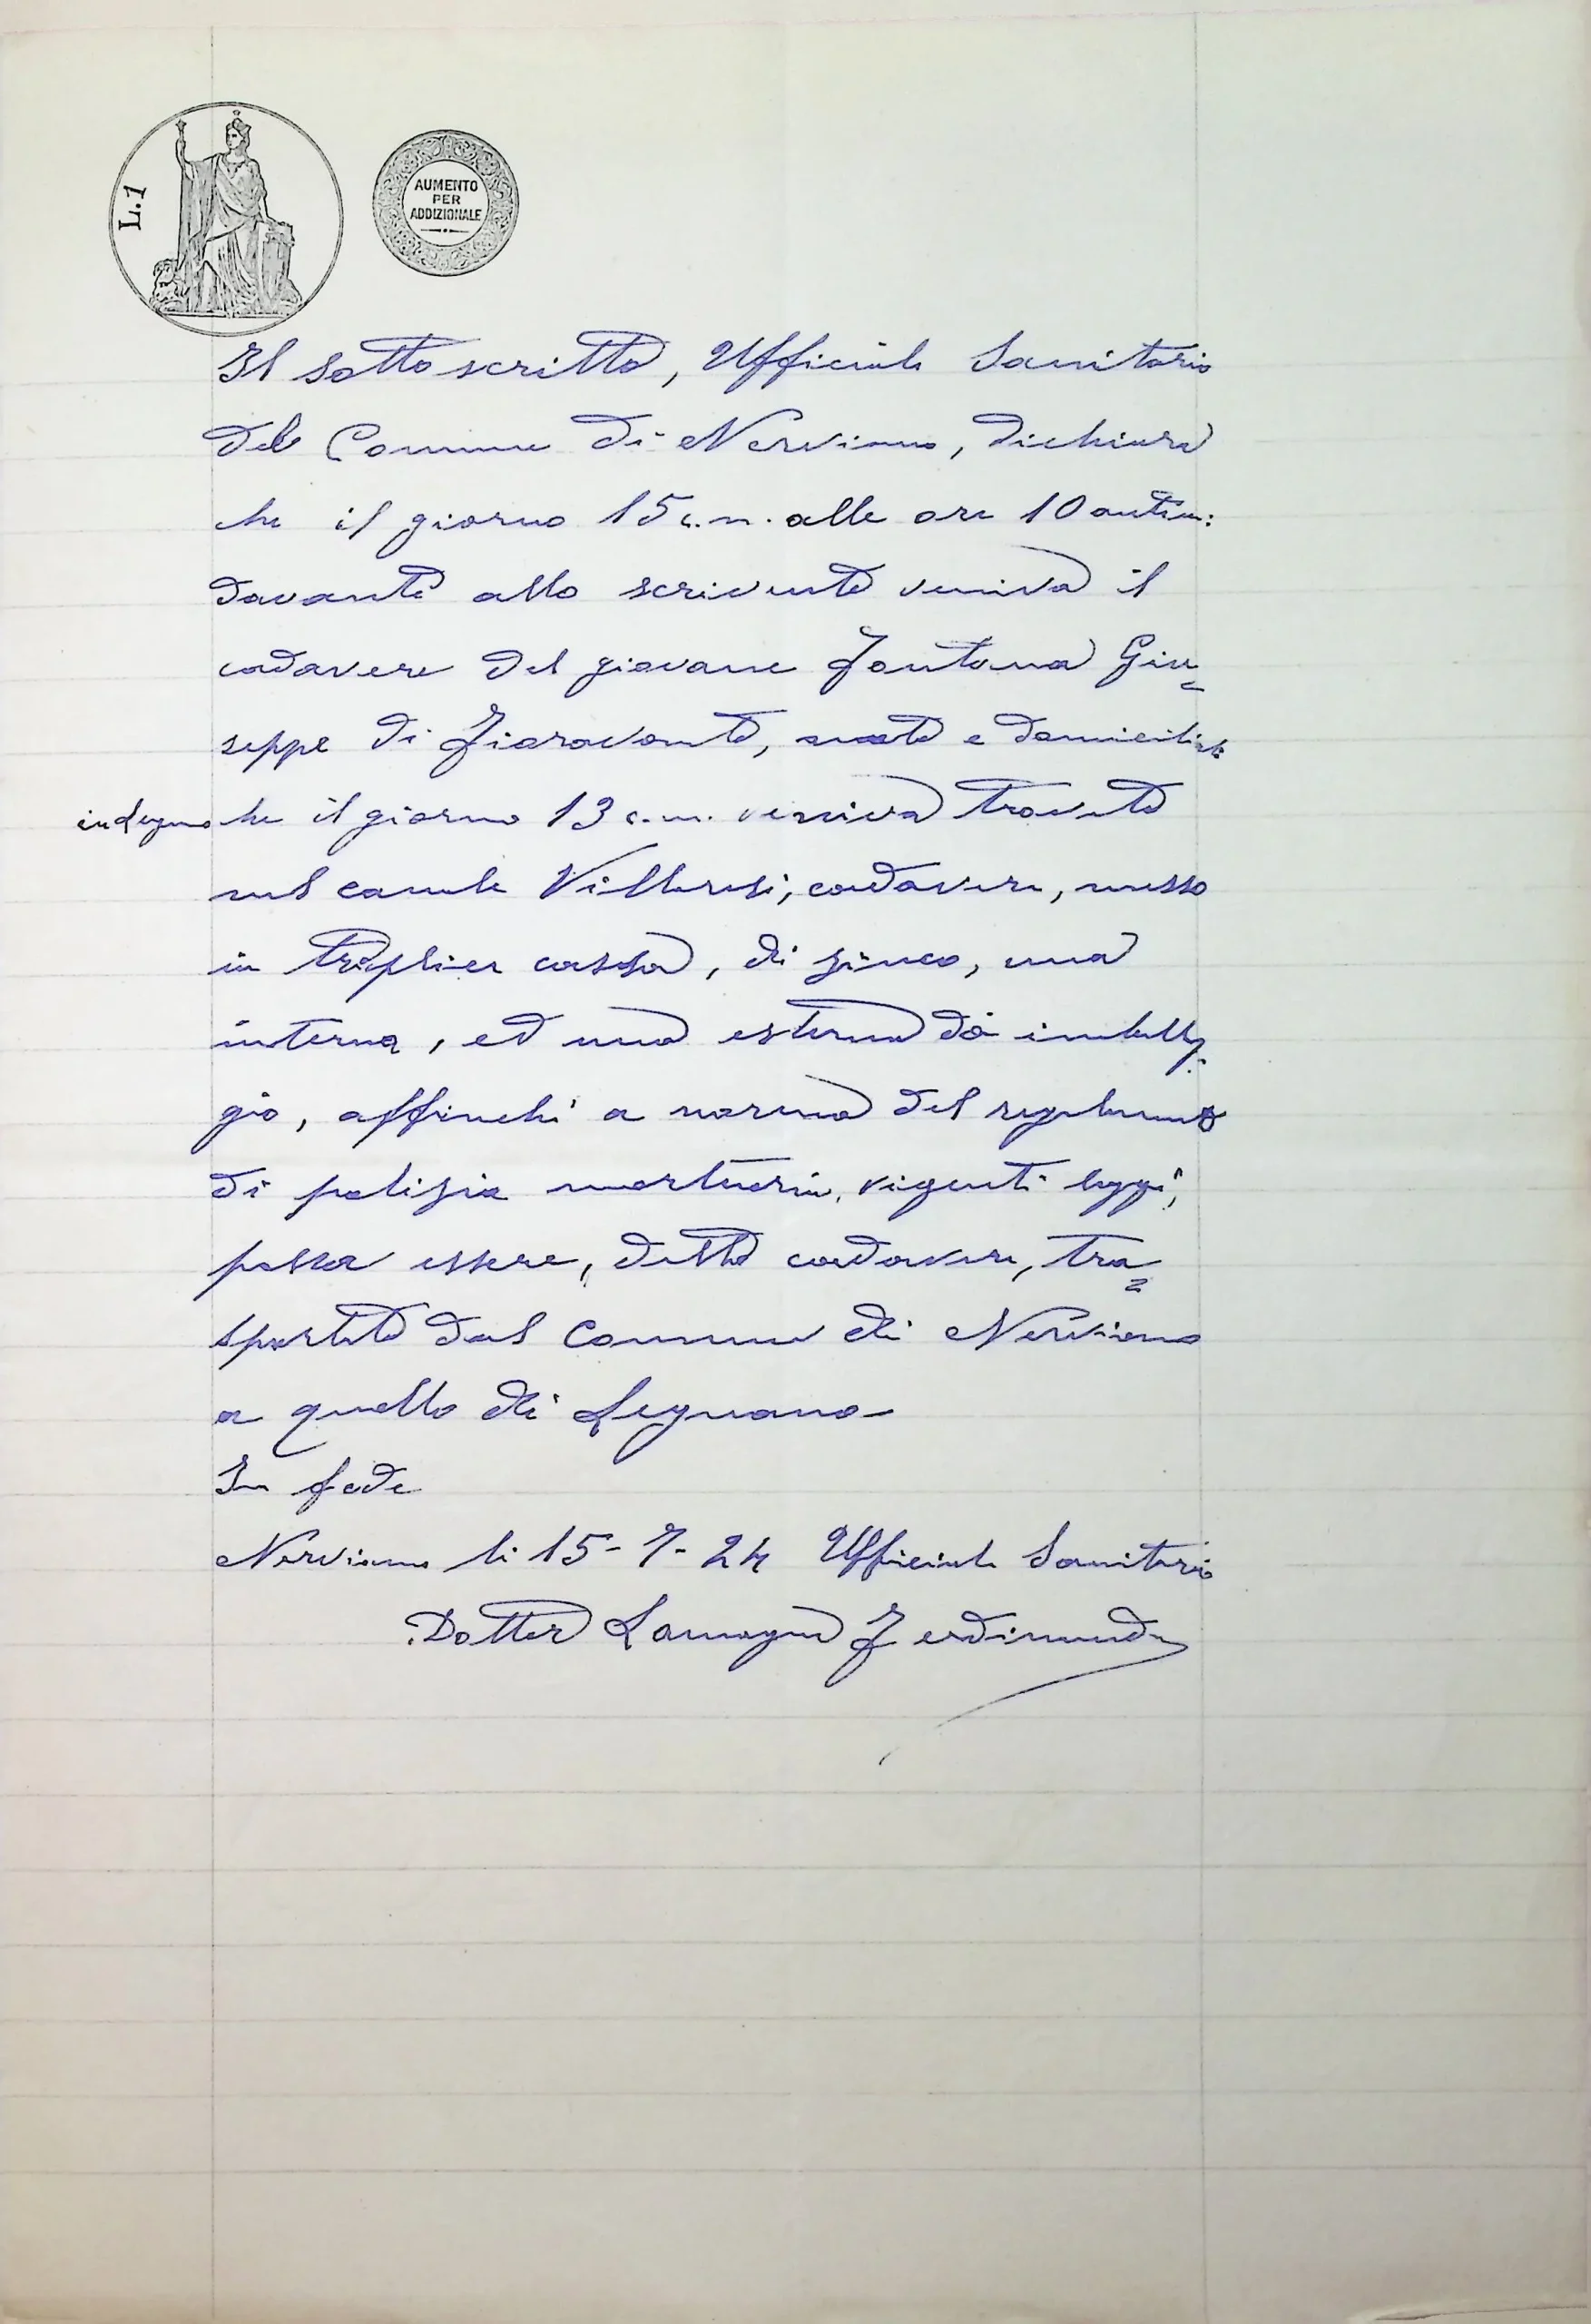 L.1
AUMENTO
PER
ADDIZIONALE
Il sottoscritto, Ufficiale Sanitario
del Comune di Nerviano, dichiara
che il giorno 15 c.m. alle ore 10 antim:
davanti allo scrivente veniva il
cadavere del giovane Fontana Giu=
seppe di Fioravante, nato e domiciliato
in Legnano che il giorno 13 c.m. veniva trovato
nel canale Villoresi, cadavere, messo
in triplice cassa, di zinco, una
interna, ed una esterna da imballag=
gio, affinchè a norma del regolamento
di polizia mortuaria, vigenti leggi,
possa essere, detto cadavere, tra=
sportato dal Comune di Nerviano
a quello di Legnano
In fede
Nerviano li 15-7-24 Ufficiale Sanitario
Dottor Lamagna Ferdinando